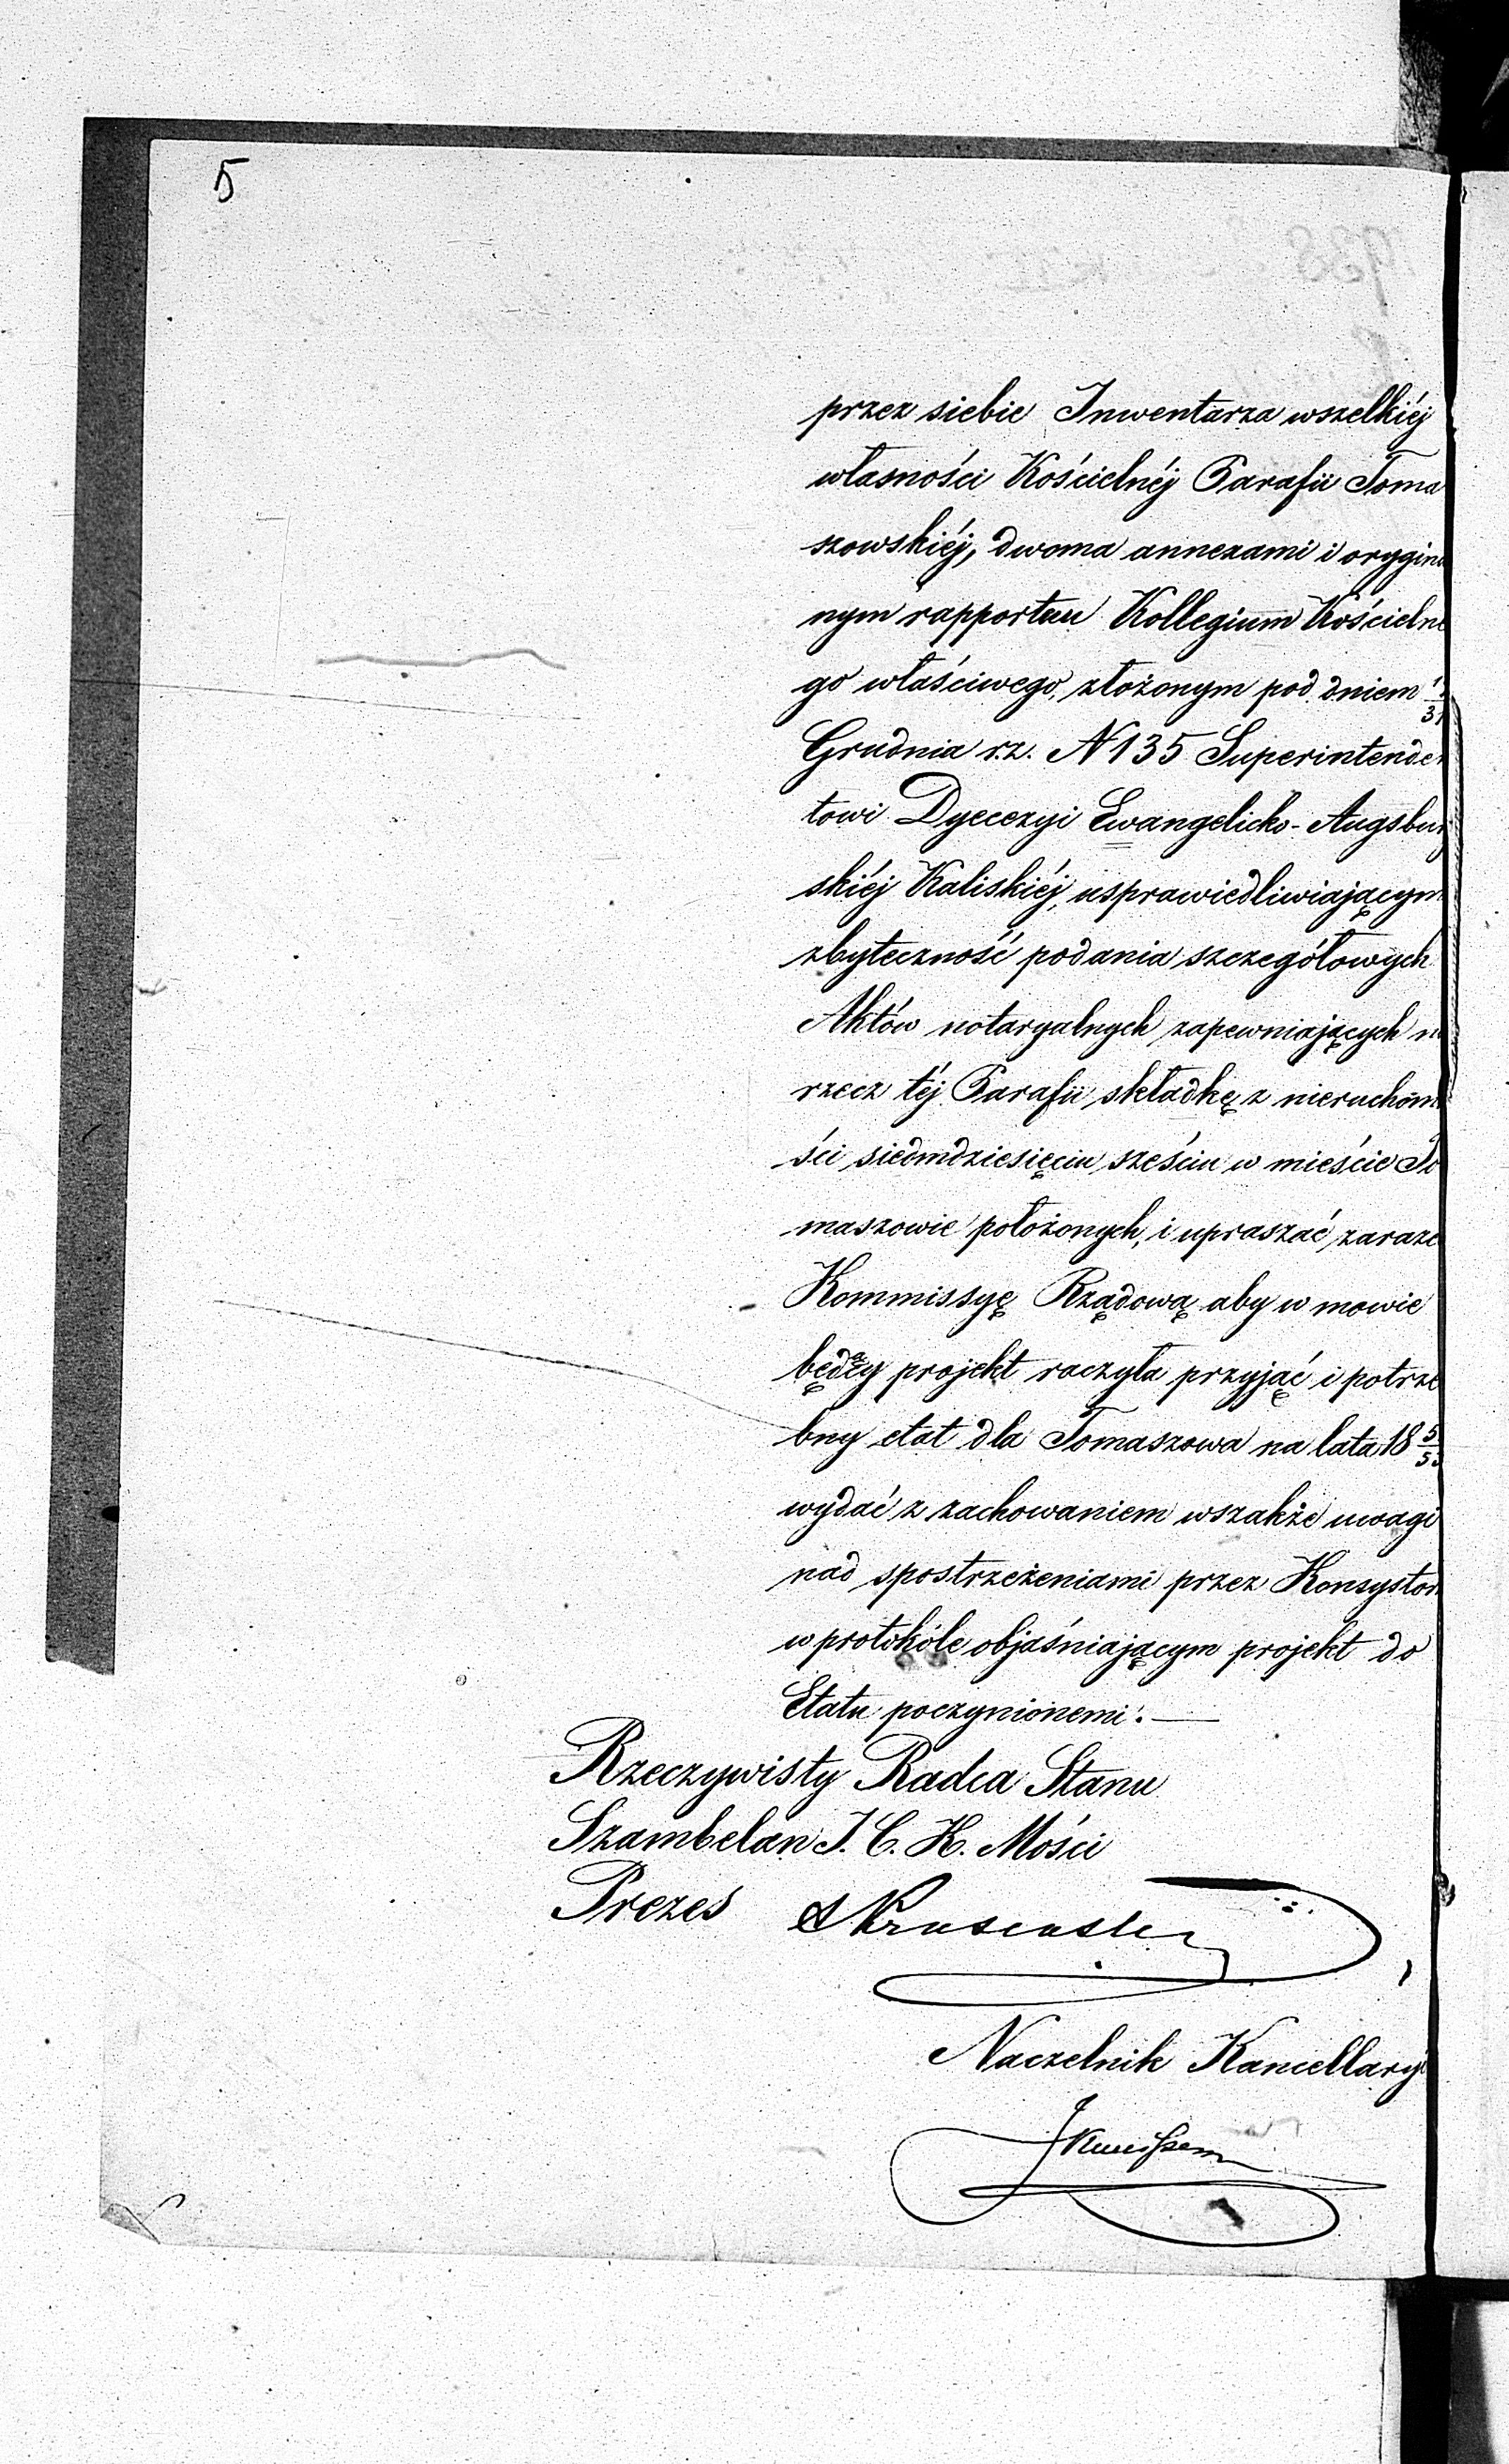 5
przez siebie Inwentarza wszelkiéj
własności Kościelnéj Parafii Toma
szowskiéj, dwoma annexami i orygina
nym rapportem Kollegium Kościelne
go właściwego, złożonym pod dniem
Grudnia r.z. N 135 Superintenden
towi Dyecezyi Ewangelicko-Augsbur
skiéj Kaliskiéj, usprawiedliwiającym
zbyteczność podania szczegółowych
Aktów notaryalnych zapewniających n
rzecz téj Parafii składkę z nieruchomo
ści siedmdziesięciu sześciu w mieście To
maszowie położonych, i upraszać zaraze
Kommissyę Rządową aby w mowie
będący projekt raczyła przyjąć i potrze
bny etat dla Tomaszowa na lata 18
wydać z zachowaniem wszakże uwagi
nad spostrzeżeniami przez Konsystor
w protokóle objaśniającym projekt do
Etatu poczynionemi. —
Rzeczywisty Radca Stanu
Szambelan J. C. K. Mości
Prezes
Naczelnik Kancellaryi